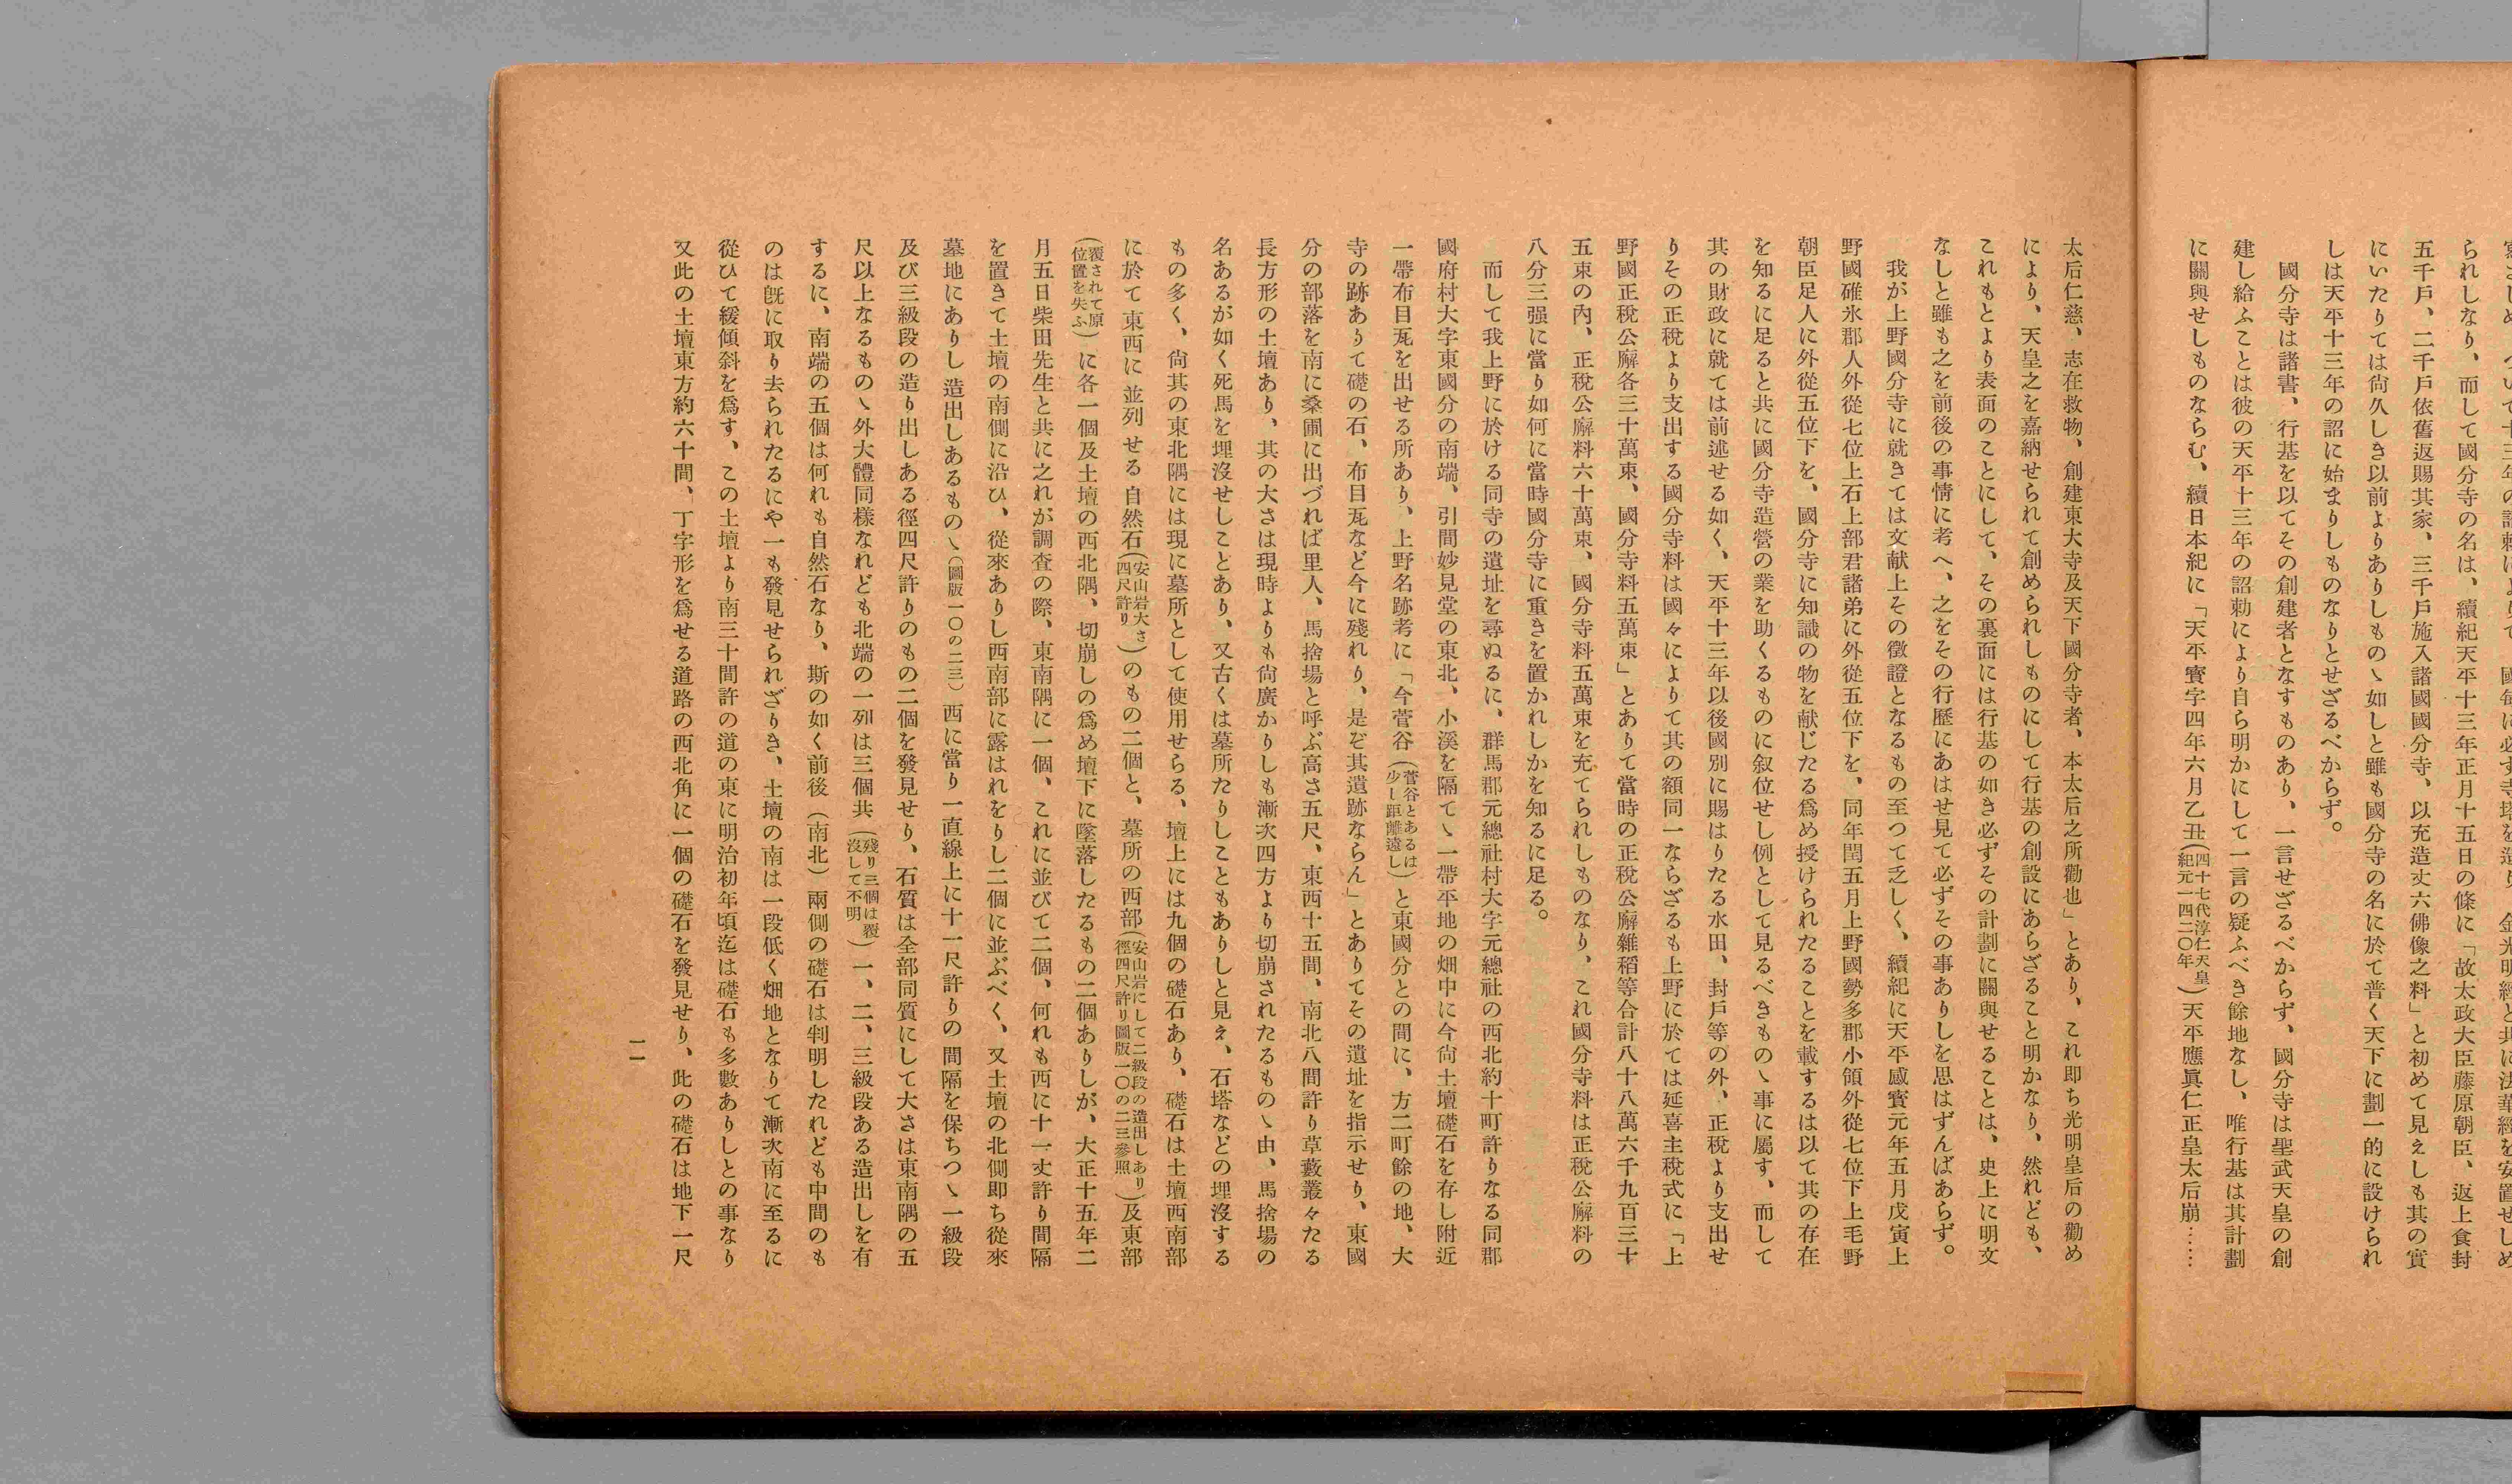 られしなり、而して國分寺の名は、續紀天平十三年正月十五日の條に「故太政大臣藤原朝臣、返上食封
五千戶、二千戶依舊返賜其家、三千戶施入諸國國分寺、以充造丈六佛像之料」と初めて見えしも其の實
にいたりては尙久しき以前よりありしもの丶如しと雖も國分寺の名に於て普く天下に劃一的に設けられ
しは天平十三年の詔に始まりしものなりとせざるべからず。
國分寺は諸書、行基を以てその創建者となすものあり、一言せざるべからず、國分寺は聖武天皇の創
建し給ふことは彼の天平十三年の詔勅により自ら明かにして一言の疑ふべき餘地なし、唯行基は其計劃
に關與せしものならむ、續日本紀に「天平寳字四年六月乙丑(四十七代淳仁天皇紀元一四二〇年)天平應眞仁正皇太后崩……
太后仁慈、志在救物、創建東大寺及天下國分寺者、本太后之所勸也」とあり、これ即ち光明皇后の勸め
により、天皇之を嘉納せられて創められしものにして行基の創設にあらざること明かなり、然れども、
これもとより表面のことにして、その裏面には行基の如き必ずその計劃に關與せることは、史上に明文
なしと雖も之を前後の事情に考へ、之をその行歷にあはせ見て必ずその事ありしを思はずんばあらず。
我が上野國分寺に就きては文献上その徵證となるもの至つて乏しく、續紀に天平感寳元年五月戊寅上
野國碓氷郡人外從七位上石上部君諸弟に外從五位下を、同年閏五月上野國勢多郡小領外從七位下上毛野
朝臣足人に外從五位下を、國分寺に知識の物を献じたる爲め授けられたることを載するは以て其の存在
を知るに足ると共に國分寺造營の業を助くるものに叙位せし例として見るべきもの丶事に屬す、而して
其の財政に就ては前述せる如く、天平十三年以後國別に賜はりたる水田、封戶等の外、正稅より支出せ
りその正稅より支出する國分寺料は國々によりて其の額同一ならざるも上野に於ては延喜主稅式に「上
野國正稅公廨各三十萬束、國分寺料五萬束」とありて當時の正稅公廨雜稻等合計八十八萬六千九百三十
五束の內、正稅公廨料六十萬束、國分寺料五萬束を充てられしものなり、これ國分寺料は正稅公廨料の
八分三强に當り如何に當時國分寺に重きを置かれしかを知るに足る。
而して我上野に於ける同寺の遺址を尋ぬるに、群馬郡元總社村大字元總社の西北約十町許りなる同郡
國府村大字東國分の南端、引間妙見堂の東北、小溪を隔て丶一帶平地の畑中に今尙土壇礎石を存し附近
一帶布目瓦を出せる所あり、上野名跡考に「今菅谷(菅谷とあるは少し距離遠し)と東國分との間に、方二町餘の地、大
寺の跡ありて礎の石、布目瓦など今に殘れり、是ぞ其遺跡ならん」とありてその遺址を指示せり、東國
分の部落を南に桑圃に出づれば里人、馬捨場と呼ぶ高さ五尺、東西十五間、南北八間許り草藪叢々たる
長方形の土壇あり、其の大さは現時よりも尙廣かりしも漸次四方より切崩されたるもの丶由、馬捨場の
名あるが如く死馬を埋沒せしことあり、又古くは墓所たりしこともありしと見え、石塔などの埋沒する
もの多く、尙其の東北隅には現に墓所として使用せらる、壇上には九個の礎石あり、礎石は土壇西南部
に於て東西に並列せる自然石(安山岩大さ四尺許り)のもの二個と、墓所の西部(安山岩にして二級段の造出しあり徑四尺許り圖版一〇の二三參照)及東部
(覆されて原位置を失ふ)に各一個及土壇の西北隅、切崩しの爲め壇下に墜落したるもの二個ありしが、大正十五年二
月五日柴田先生と共に之れが調査の際、東南隅に一個、これに並びて二個、何れも西に十一丈許り間隔
を置きて土壇の南側に沿ひ、從來ありし西南部に露はれをりし二個に並ぶべく、又土壇の北側即ち從來
墓地にありし造出しあるもの丶(圖版一〇の二三)西に當り一直線上に十一尺許りの間隔を保ちつ丶一級段
及び三級段の造り出しある徑四尺許りのもの二個を發見せり、石質は全部同質にして大さは東南隅の五
尺以上なるもの丶外大體同樣なれども北端の一列は三個共(殘り三個は覆沒して不明)一、二、三級段ある造出しを有
するに、南端の五個は何れも自然石なり、斯の如く前後(南北)兩側の礎石は判明したれども中間のも
のは旣に取り去られたるにや一も發見せられざりき、土壇の南は一段低く畑地となりて漸次南に至るに
從ひて緩傾斜を爲す、この土壇より南三十間許の道の東に明治初年頃迄は礎石も多數ありしとの事なり
又此の土壇東方約六十間、丁字形を爲せる道路の西北角に一個の礎石を發見せり、此の礎石は地下一尺
一一